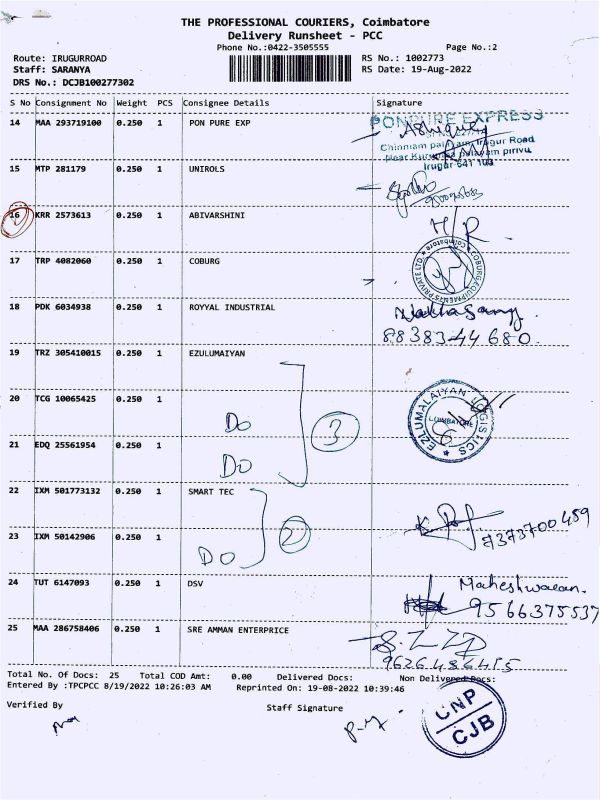 THE PROFESSIONAL COURIERS, Coimbatore
Delivery Runsheet - PCC
Phone No.:0422-3505555
Page No.:2
Route: IRUGURROAD
RS No.: 1002773
Staff: SARANYA
RS Date: 19-Aug-2022
DRS No.: DCJB100277302
S No Consignment No Weight PCS Consignee Details Signature
14 MAA 293719100 0.250 1 PON PURE EXP
PONPURE EXPRESS
Chinniam palayam, Irugur Road
Irugur-641 103
15 MTP 281179 0.250 1 UNIROLS
16 KRR 2573613 0.250 1 ABIVARSHINI
H/R
17 TRP 4082060 0.250 1 COBURG
COBURG EQUIPMENTS PRIVATE LTD. Coimbatore
18 PDK 6034938 0.250 1 ROYYAL INDUSTRIAL
8838344680.
19 TRZ 305410015 0.250 1 EZULUMAIYAN
20 TCG 10065425 0.250 1
Do 3
EZLUMALAIYAN LOGISTICS COIMBATORE
21 EDQ 25561954 0.250 1
Do
22 IXM 501773132 0.250 1 SMART TEC
7373700459
23 IXM 50142906 0.250 1
Do 2
24 TUT 6147093 0.250 1 DSV
Maheshwaran.
9566375537
25 MAA 286758406 0.250 1 SRE AMMAN ENTERPRICE
9626486415
Total No. Of Docs: 25 Total COD Amt: 0.00 Delivered Docs: Non Delivered Docs:
Entered By :TPCPCC 8/19/2022 10:26:03 AM Reprinted On: 19-08-2022 10:39:46
Verified By
Staff Signature
UNP
CJB